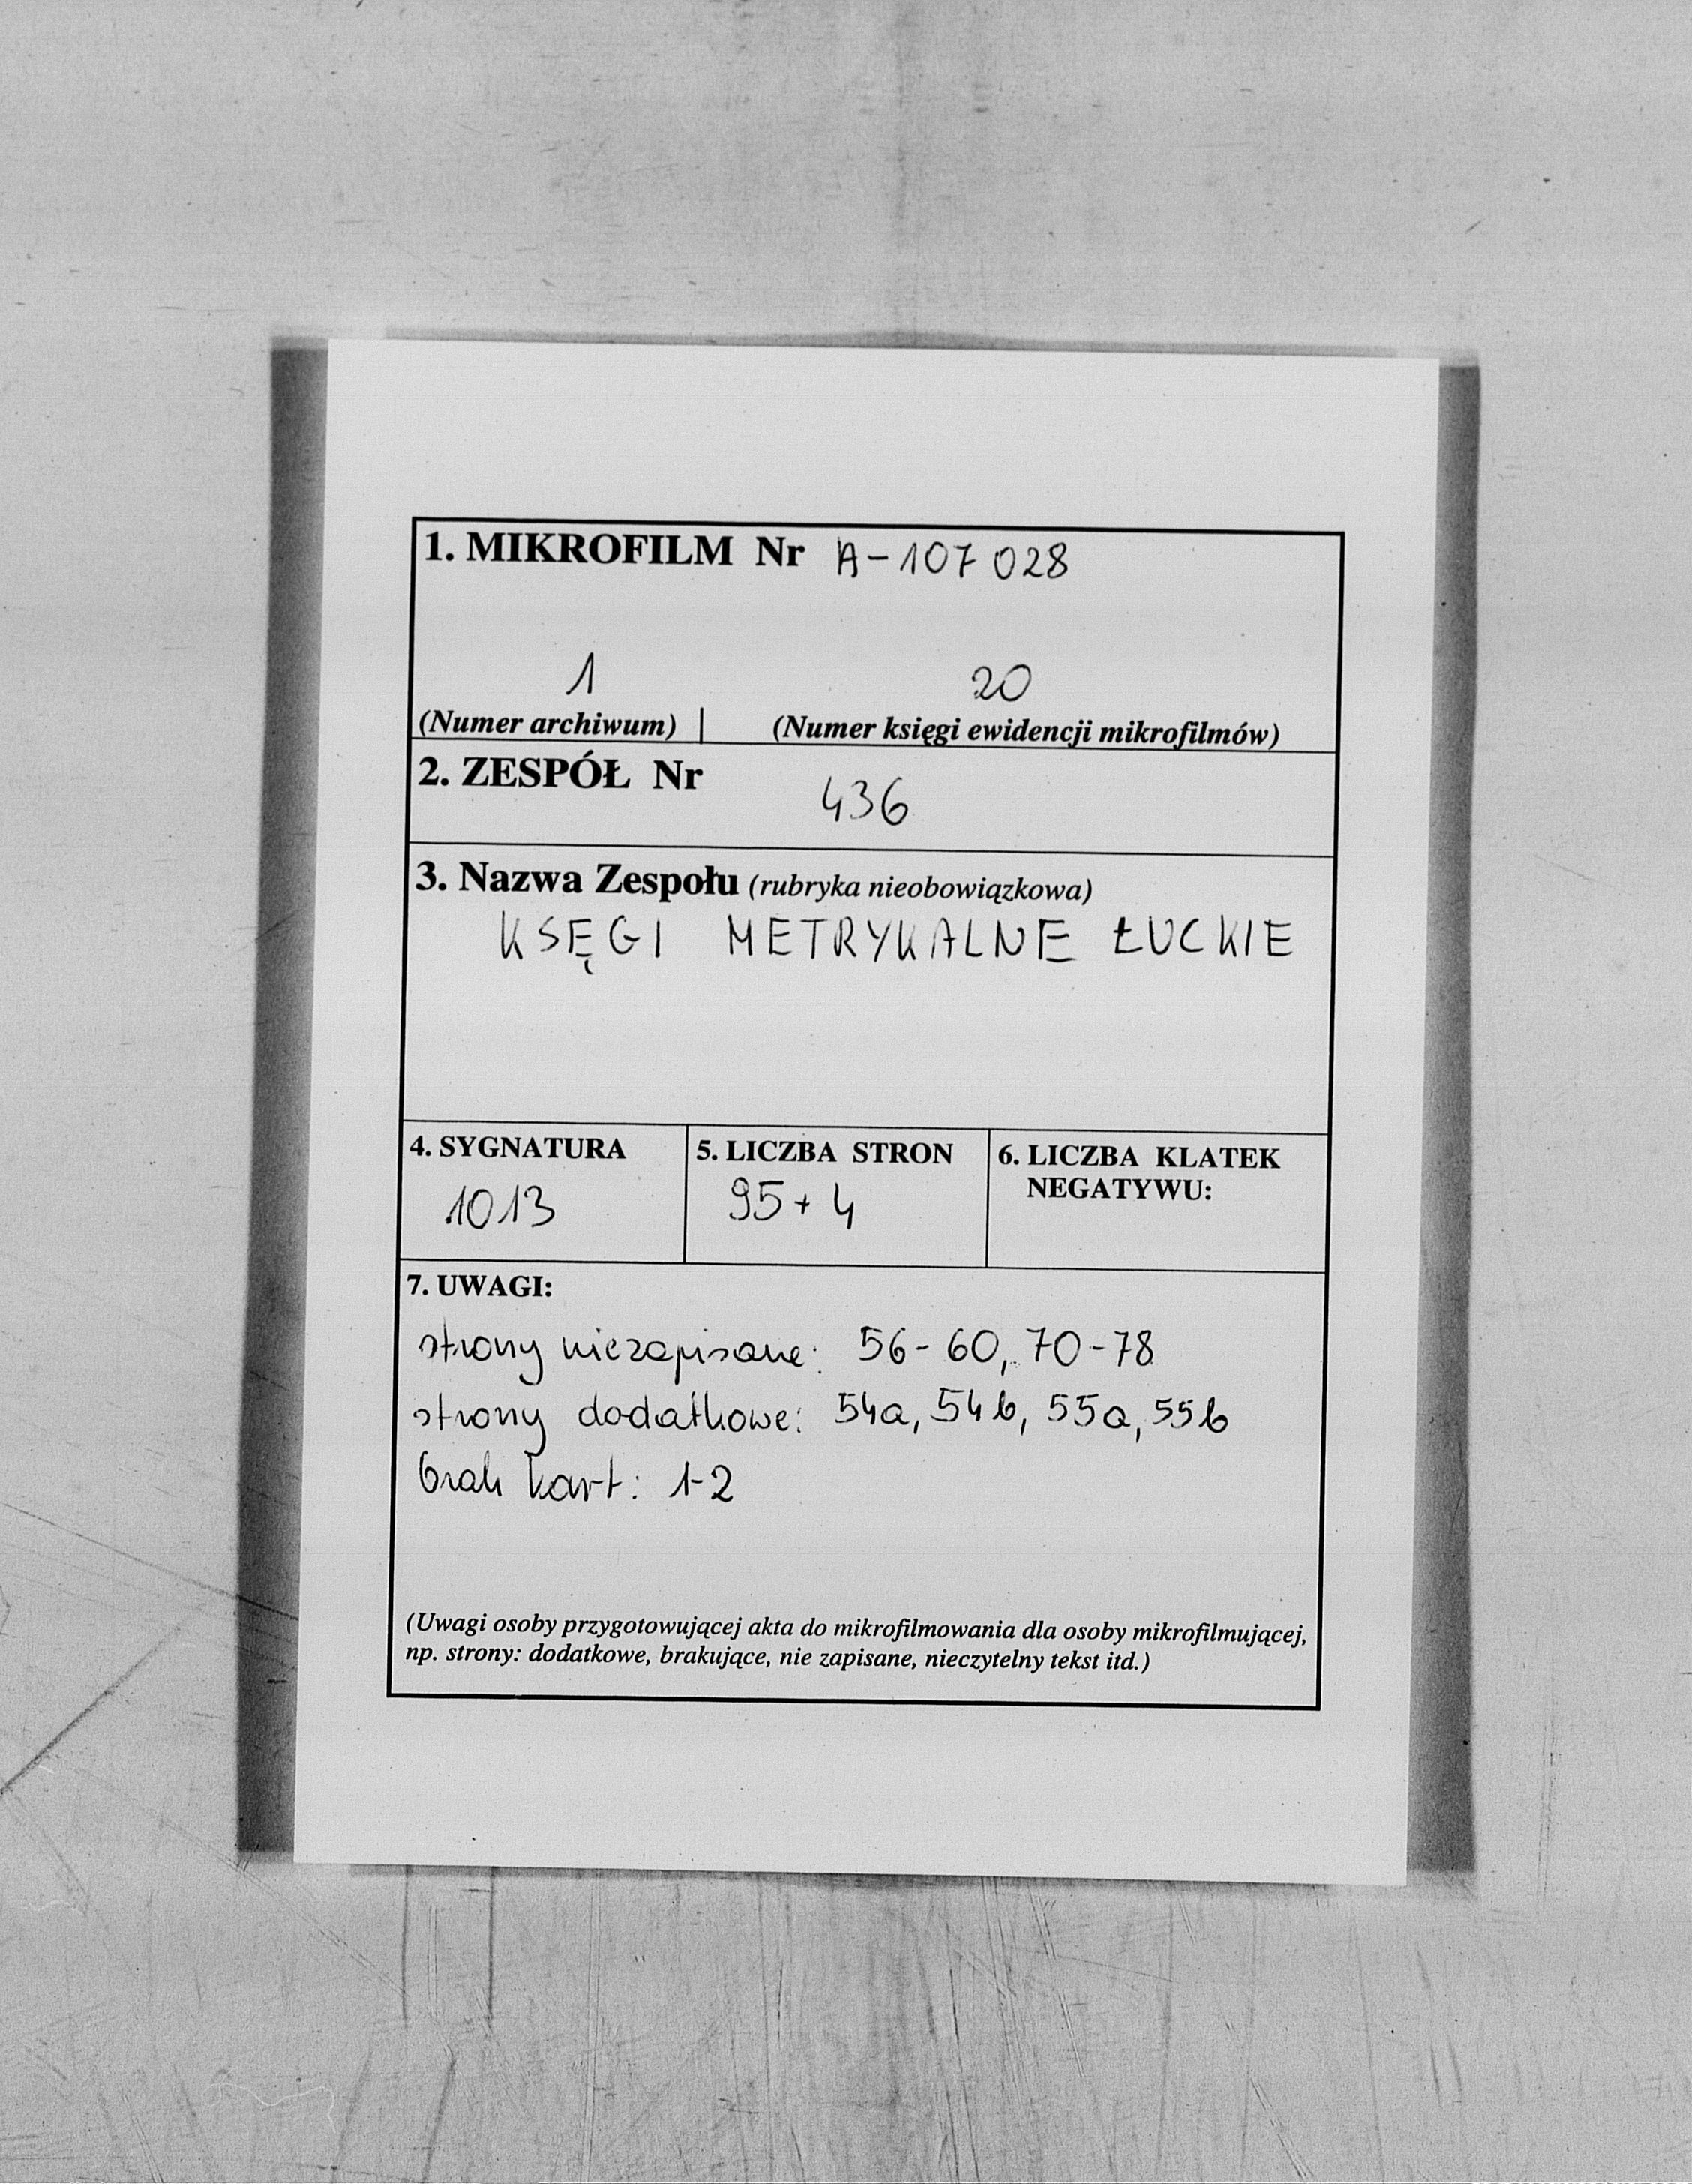 1. MIKROFILM Nr A-107 028
1 20
(Numer archiwum) | (Numer księgi ewidencji mikrofilmów)
2. ZESPÓŁ Nr 436
3. Nazwa Zespołu (rubryka nieobowiązkowa)
KSĘGI METRYKALNE ŁUCKIE
4. SYGNATURA 5. LICZBA STRON 6. LICZBA KLATEK
NEGATYWU:
1013 95+4
7. UWAGI:
strony niezapisane: 56-60, 70-78
strony dodatkowe: 54a, 54b, 55a, 55b
brak kart: 1-2
(Uwagi osoby przygotowującej akta do mikrofilmowania dla osoby mikrofilmującej,
np. strony: dodatkowe, brakujące, nie zapisane, nieczytelny tekst itd.)